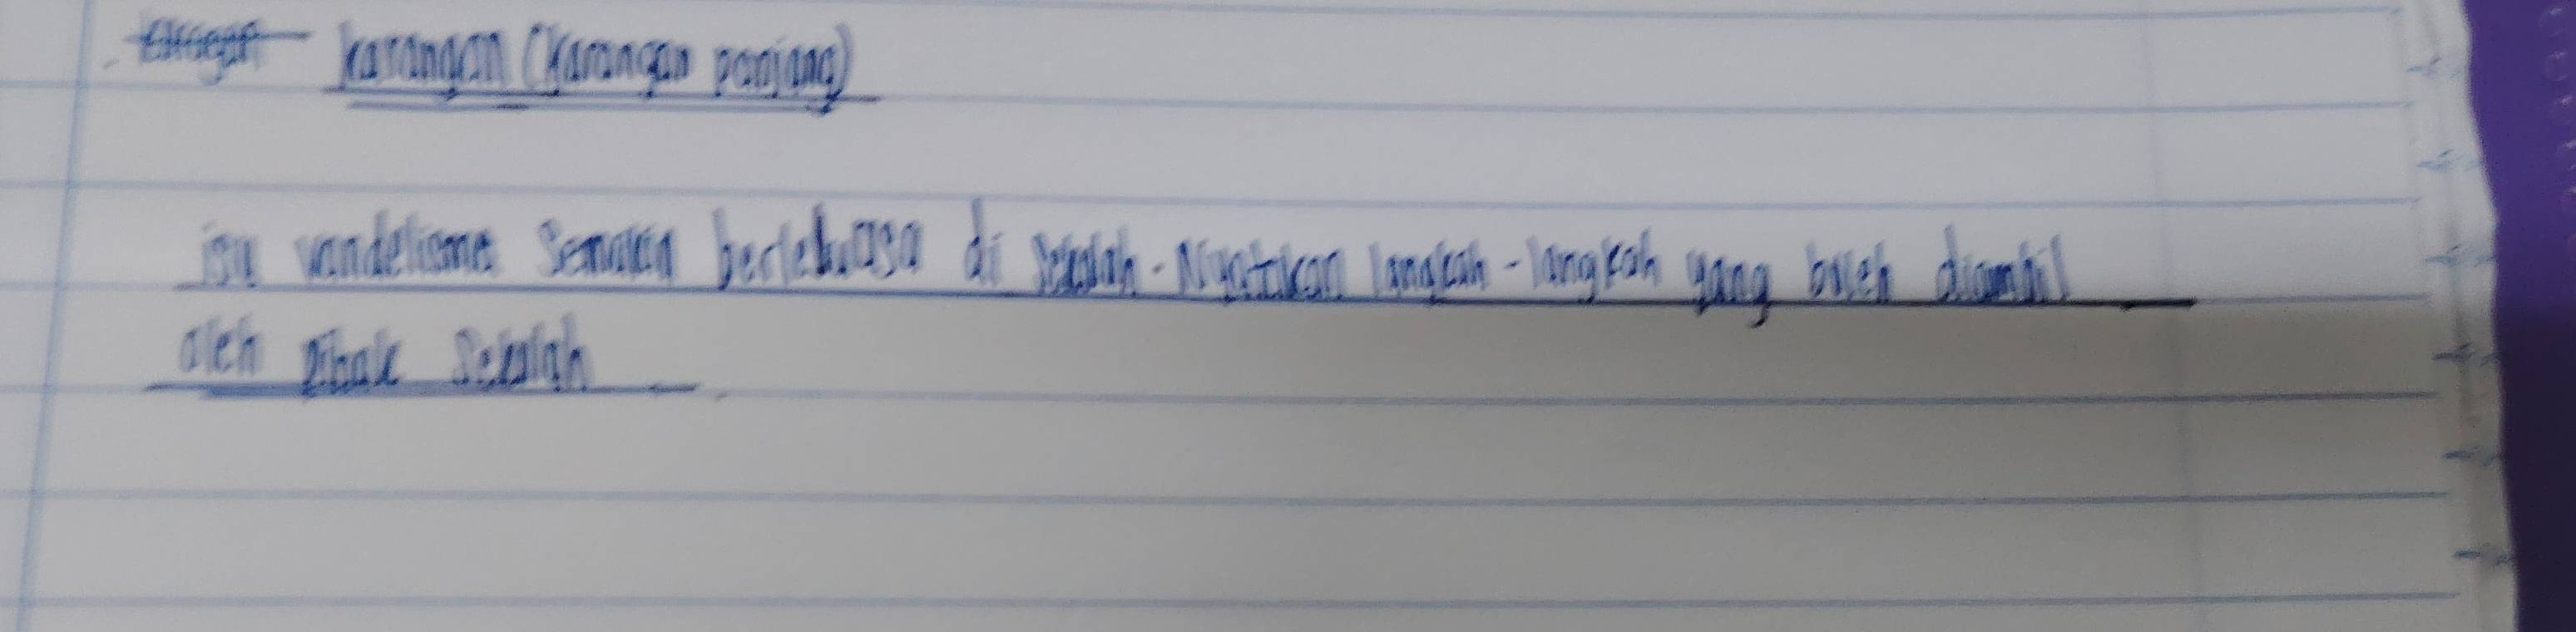 karangan (karangan panjang)
isu vandelisme semakin berleluasa di sekolah. Nyatakan langkah-langkah yang boleh diambil
oleh pihak sekolah